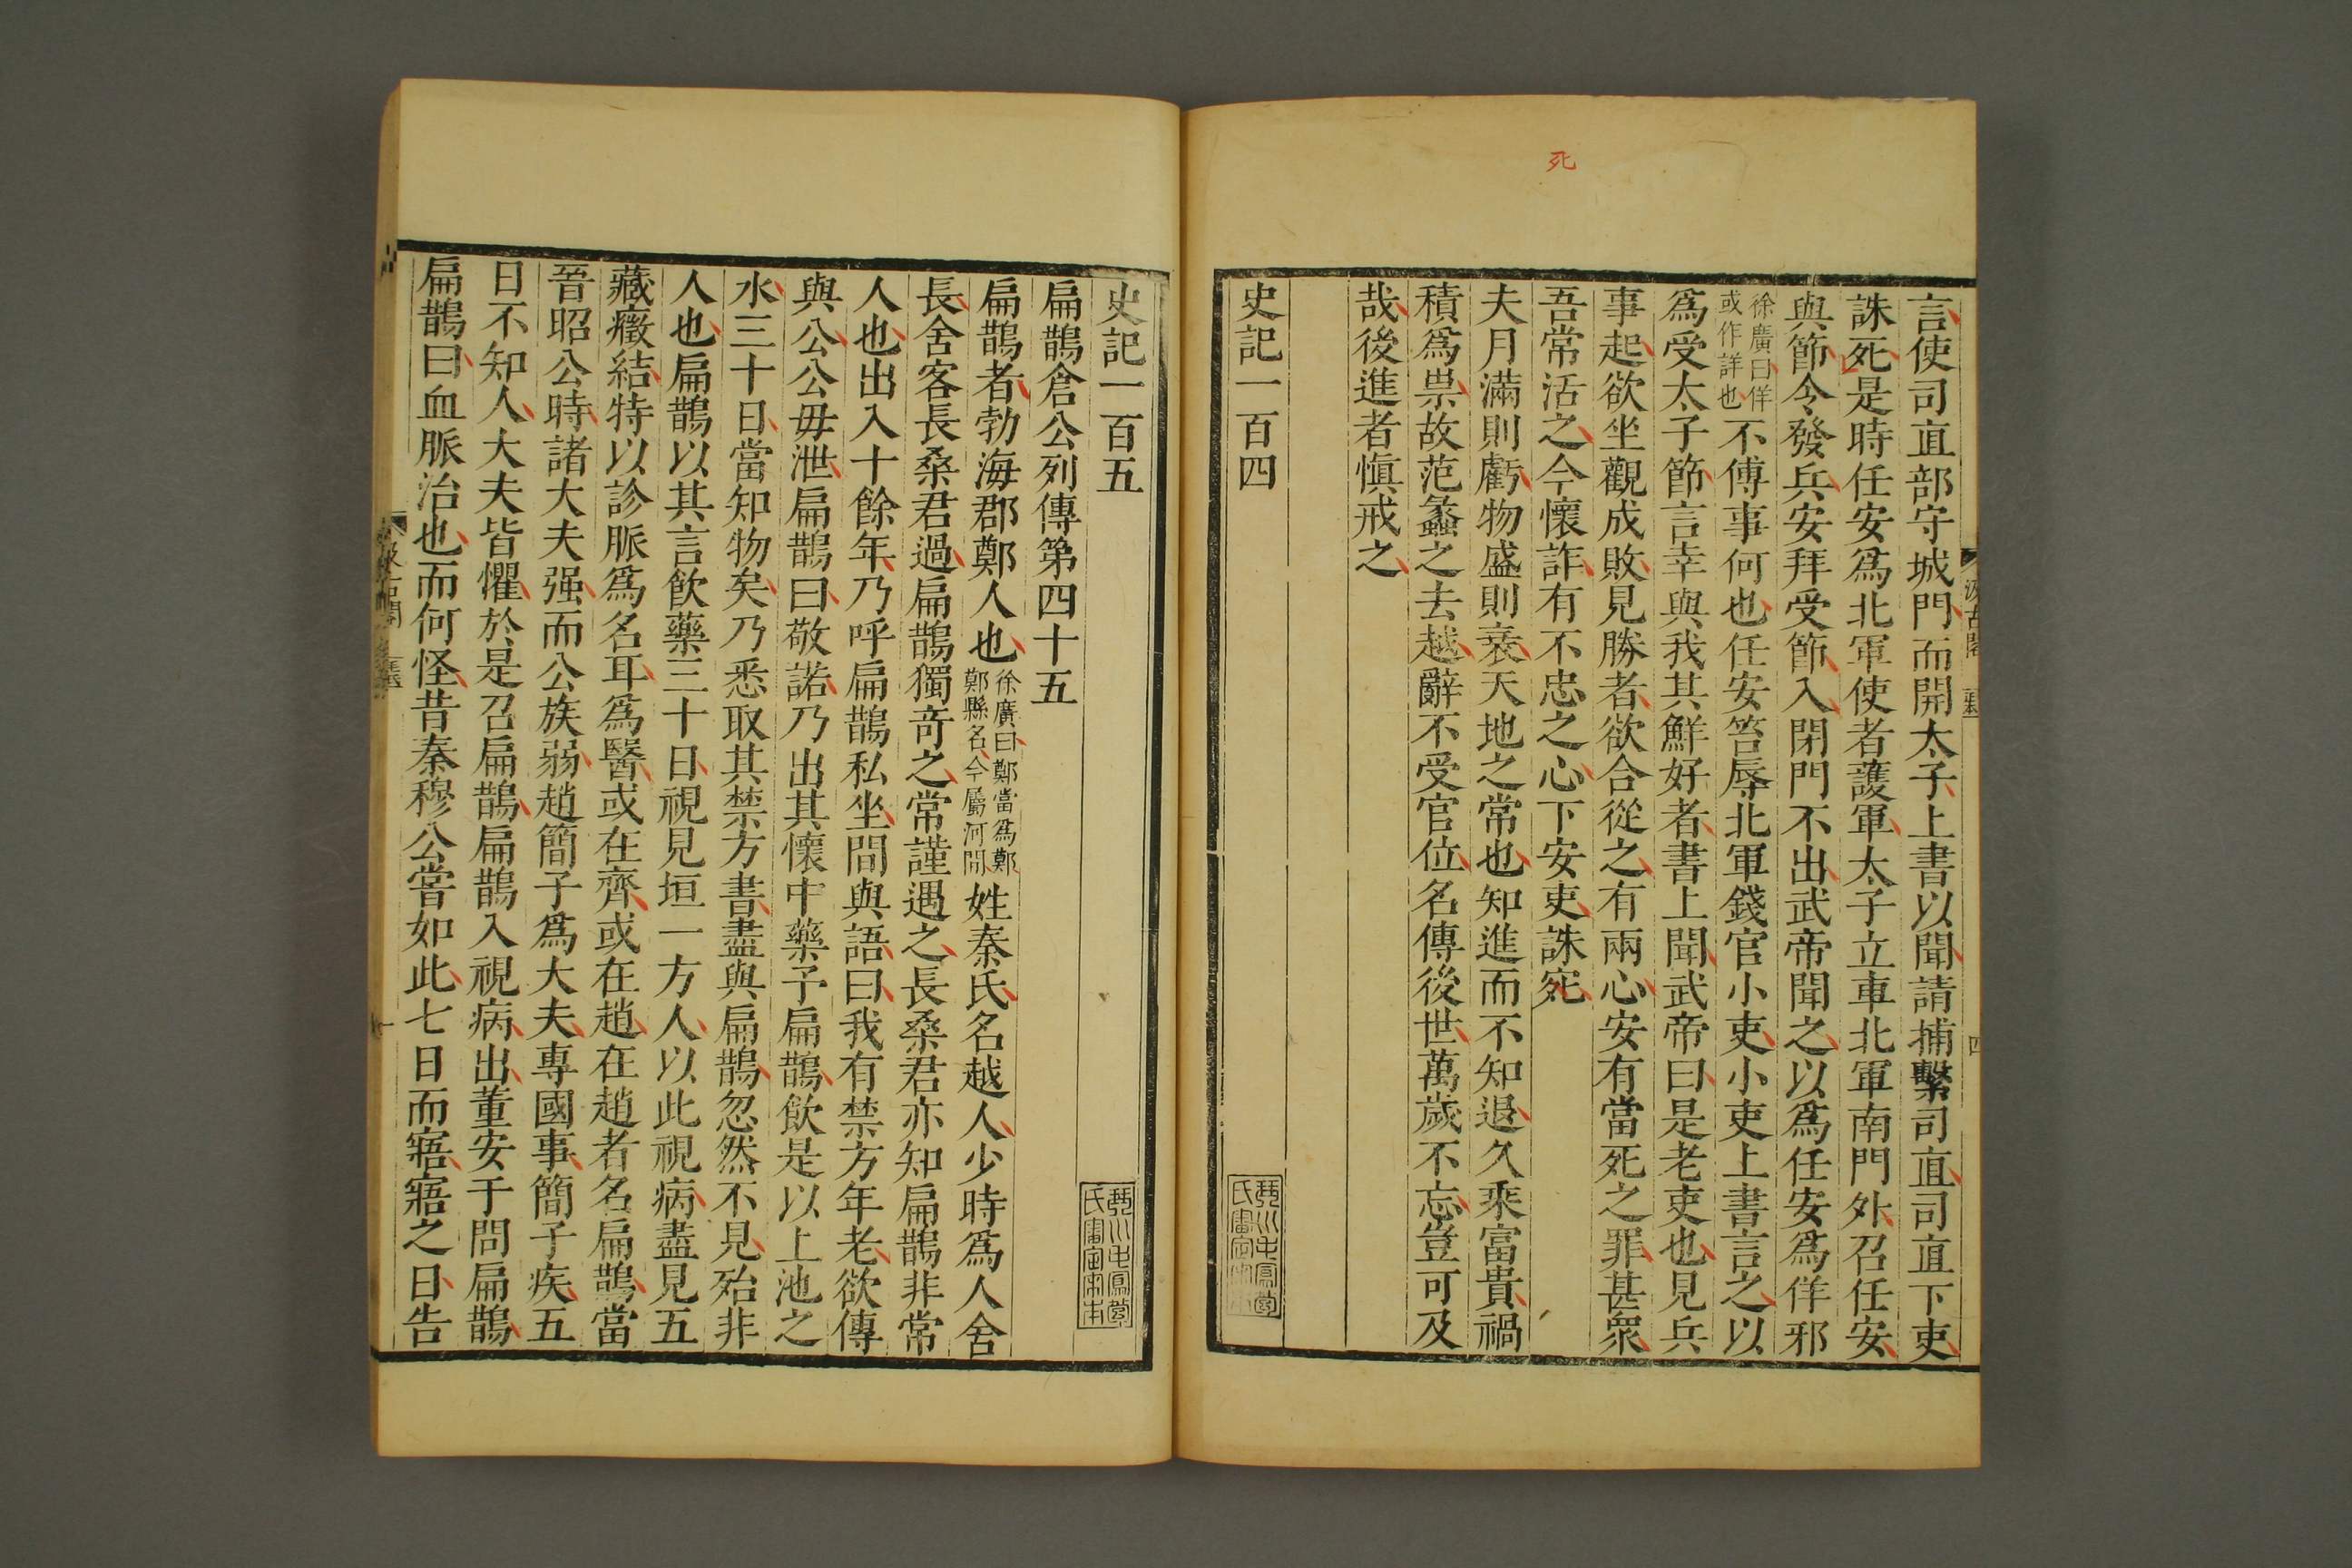 死
言使司直部守城門而開太子上書以聞請捕繫司直司直下吏
誅死是時任安爲北軍使者護軍太子立車北軍南門外召任安
與節令發兵安拜受節入閉門不出武帝聞之以爲任安爲佯邪
徐廣曰佯
或作詳也
不傅事何也任安笞辱北軍錢官小吏小吏上書言之以
爲受太子節言幸與我其鮮好者書上聞武帝曰是老吏也見兵
事起欲坐觀成敗見勝者欲合從之有兩心安有當死之罪甚衆
吾常活之今懷詐有不忠之心下安吏誅宛
夫月滿則虧物盛則衰天地之常也知進而不知退久乘富貴禍
積爲祟故范蠡之去越辭不受官位名傳後世萬歲不忘豈可及
哉後進者愼戒之
史記一百四
史記一百五
扁鵲倉公列傳第四十五
扁鵲者勃海郡鄭人也
徐廣曰鄭當爲鄚
鄚縣名今屬河間
姓秦氏名越人少時爲人舍
長舍客長桑君過扁鵲獨奇之常謹遇之長桑君亦知扁鵲非常
人也出入十餘年乃呼扁鵲私坐間與語曰我有禁方年老欲傳
與公公毋泄扁鵲曰敬諾乃出其懷中藥予扁鵲飲是以上池之
水三十日當知物矣乃悉取其禁方書盡與扁鵲忽然不見殆非
人也扁鵲以其言飲藥三十日視見垣一方人以此視病盡見五
藏癥結特以診脈爲名耳爲醫或在齊或在趙在趙者名扁鵲當
晉昭公時諸大夫强而公族弱趙簡子爲大夫專國事簡子疾五
日不知人大夫皆懼於是召扁鵲扁鵲入視病出董安于問扁鵲
扁鵲曰血脈治也而何怪昔秦穆公嘗如此七日而寤寤之日告